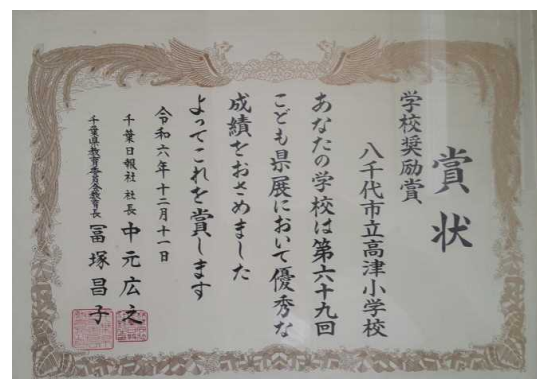 賞状
学校奨励賞
八千代市立高津小学校
あなたの学校は第六十九回
こども県展において優秀な
成績をおさめました
よってこれを賞します
令和六年十二月十一日
千葉日報社 社長 中元広之
千葉県教育委員会教育長 冨塚昌子